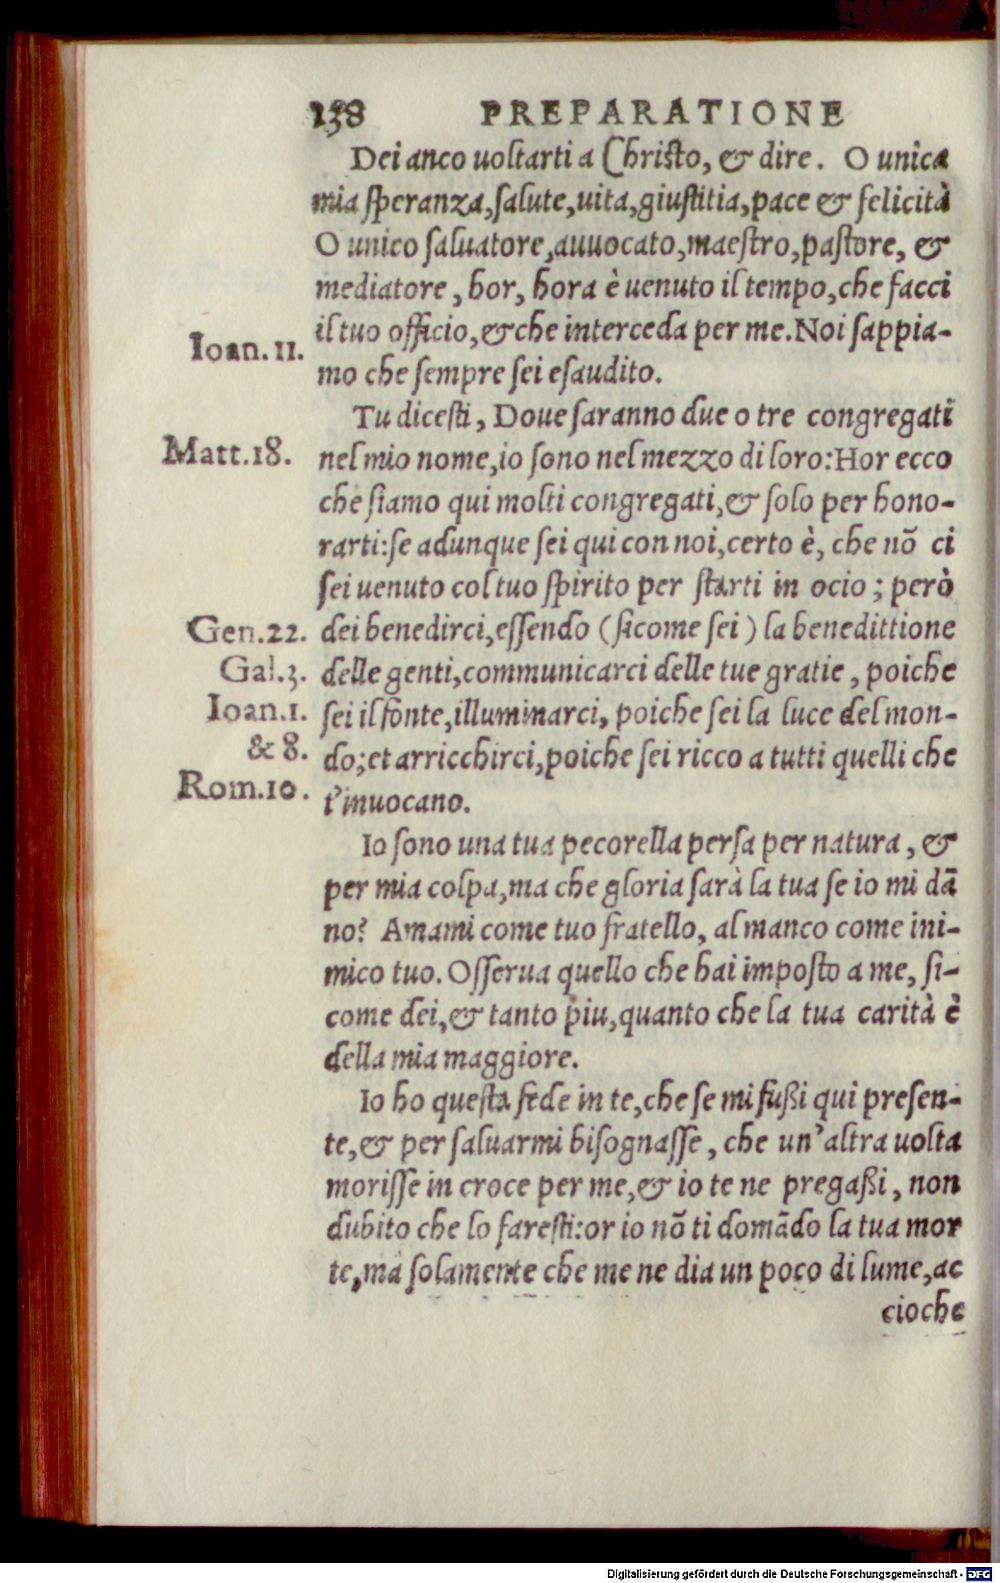 138 PREPARATIONE
Dei anco uoltarti a Christo, & dire. O unica
mia speranza, salute, uita, giustitia, pace & felicità
O unico saluatore, auuocato, maestro, pastore, &
mediatore, hor, hora è uenuto il tempo, che facci
il tuo officio, & che interceda per me. Noi sappia-
Ioan. 11.
mo che sempre sei esaudito.
Tu dicesti, Doue saranno due o tre congregati
Matt. 18.
nel mio nome, io sono nel mezzo di loro: Hor ecco
che siamo qui molti congregati, & solo per hono-
rarti: se adunque sei qui con noi, certo è, che nõ ci
sei uenuto col tuo spirito per starti in ocio; però
Gen. 22.
dei benedirci, essendo (sicome sei) la benedittione
Gal. 3.
delle genti, communicarci delle tue gratie, poiche
Ioan. 1.
sei il fonte, illuminarci, poiche sei la luce del mon-
& 8.
do; et arricchirci, poiche sei ricco a tutti quelli che
Rom. 10.
t'inuocano.
Io sono una tua pecorella persa per natura, &
per mia colpa, ma che gloria sarà la tua se io mi dã
no? Amami come tuo fratello, al manco come ini-
mico tuo. Osserua quello che hai imposto a me, si-
come dei, & tanto piu, quanto che la tua carità è
della mia maggiore.
Io ho questa fede in te, che se mi fußi qui presen-
te, & per saluarmi bisognasse, che un'altra uolta
morisse in croce per me, & io te ne pregaßi, non
dubito che lo faresti: or io nõ ti domãdo la tua mor
te, ma solamente che me ne dia un poco di lume, ac
cioche
Digitalisierung gefördert durch die Deutsche Forschungsgemeinschaft - DFG